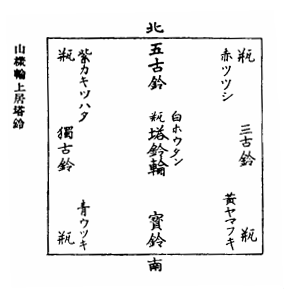 北
瓶
赤ツツシ
三古鈴
黃ヤマフキ
瓶
五古鈴
白ホウタン
瓶
塔鈴輪
寶鈴
紫カキツハタ
瓶
獨古鈴
青ウツキ
瓶
南
山様輪上居塔鈴